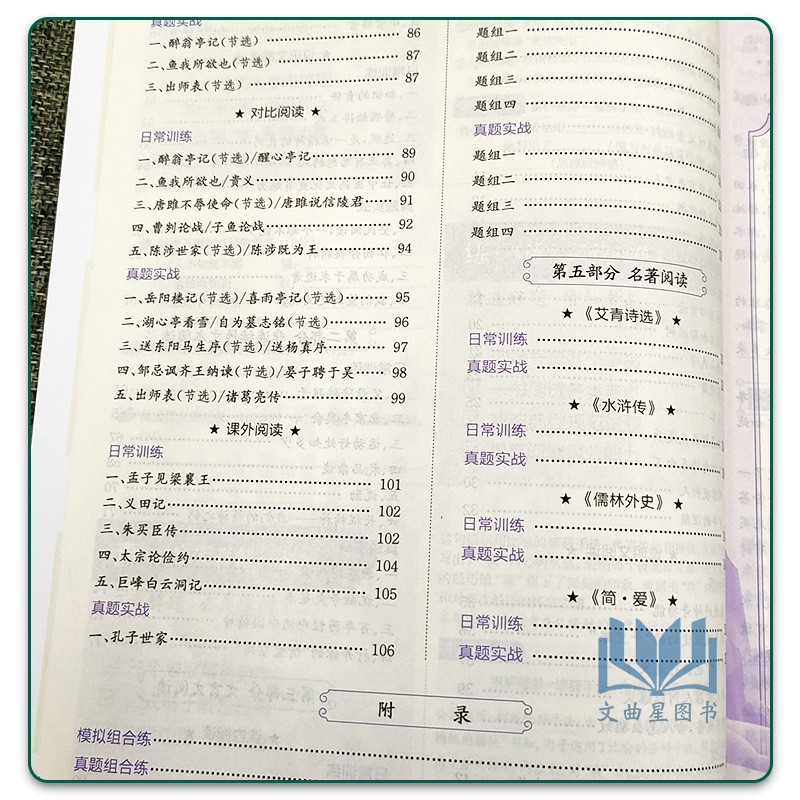 真题实战
一、醉翁亭记(节选) 86
二、鱼我所欲也(节选) 87
三、出师表(节选) 87
★ 对比阅读 ★
日常训练
一、醉翁亭记(节选)/醒心亭记 89
二、鱼我所欲也/贵义 90
三、唐雎不辱使命(节选)/唐雎说信陵君 91
四、曹刿论战/子鱼论战 92
五、陈涉世家(节选)/陈涉既为王 94
真题实战
一、岳阳楼记(节选)/喜雨亭记(节选) 95
二、湖心亭看雪/自为墓志铭(节选) 96
三、送东阳马生序(节选)/送杨寘序 97
四、邹忌讽齐王纳谏(节选)/晏子聘于吴 98
五、出师表(节选)/诸葛亮传 99
★ 课外阅读 ★
日常训练
一、孟子见梁襄王 101
二、义田记 102
三、朱买臣传 102
四、太宗论俭约 104
五、巨峰白云洞记 105
真题实战
一、孔子世家 106
题组一
题组二
题组三
题组四
真题实战
题组一
题组二
题组三
题组四
第五部分 名著阅读
★ 《艾青诗选》 ★
日常训练
真题实战
★ 《水浒传》 ★
日常训练
真题实战
★ 《儒林外史》 ★
日常训练
真题实战
★ 《简·爱》 ★
日常训练
真题实战
附 录
模拟组合练
真题组合练
文曲星图书